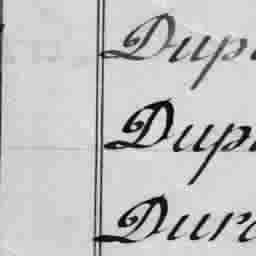 Dup
Dup
Dur